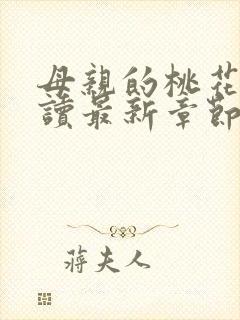 母親的桃花
讀最新章節
蔣夫人